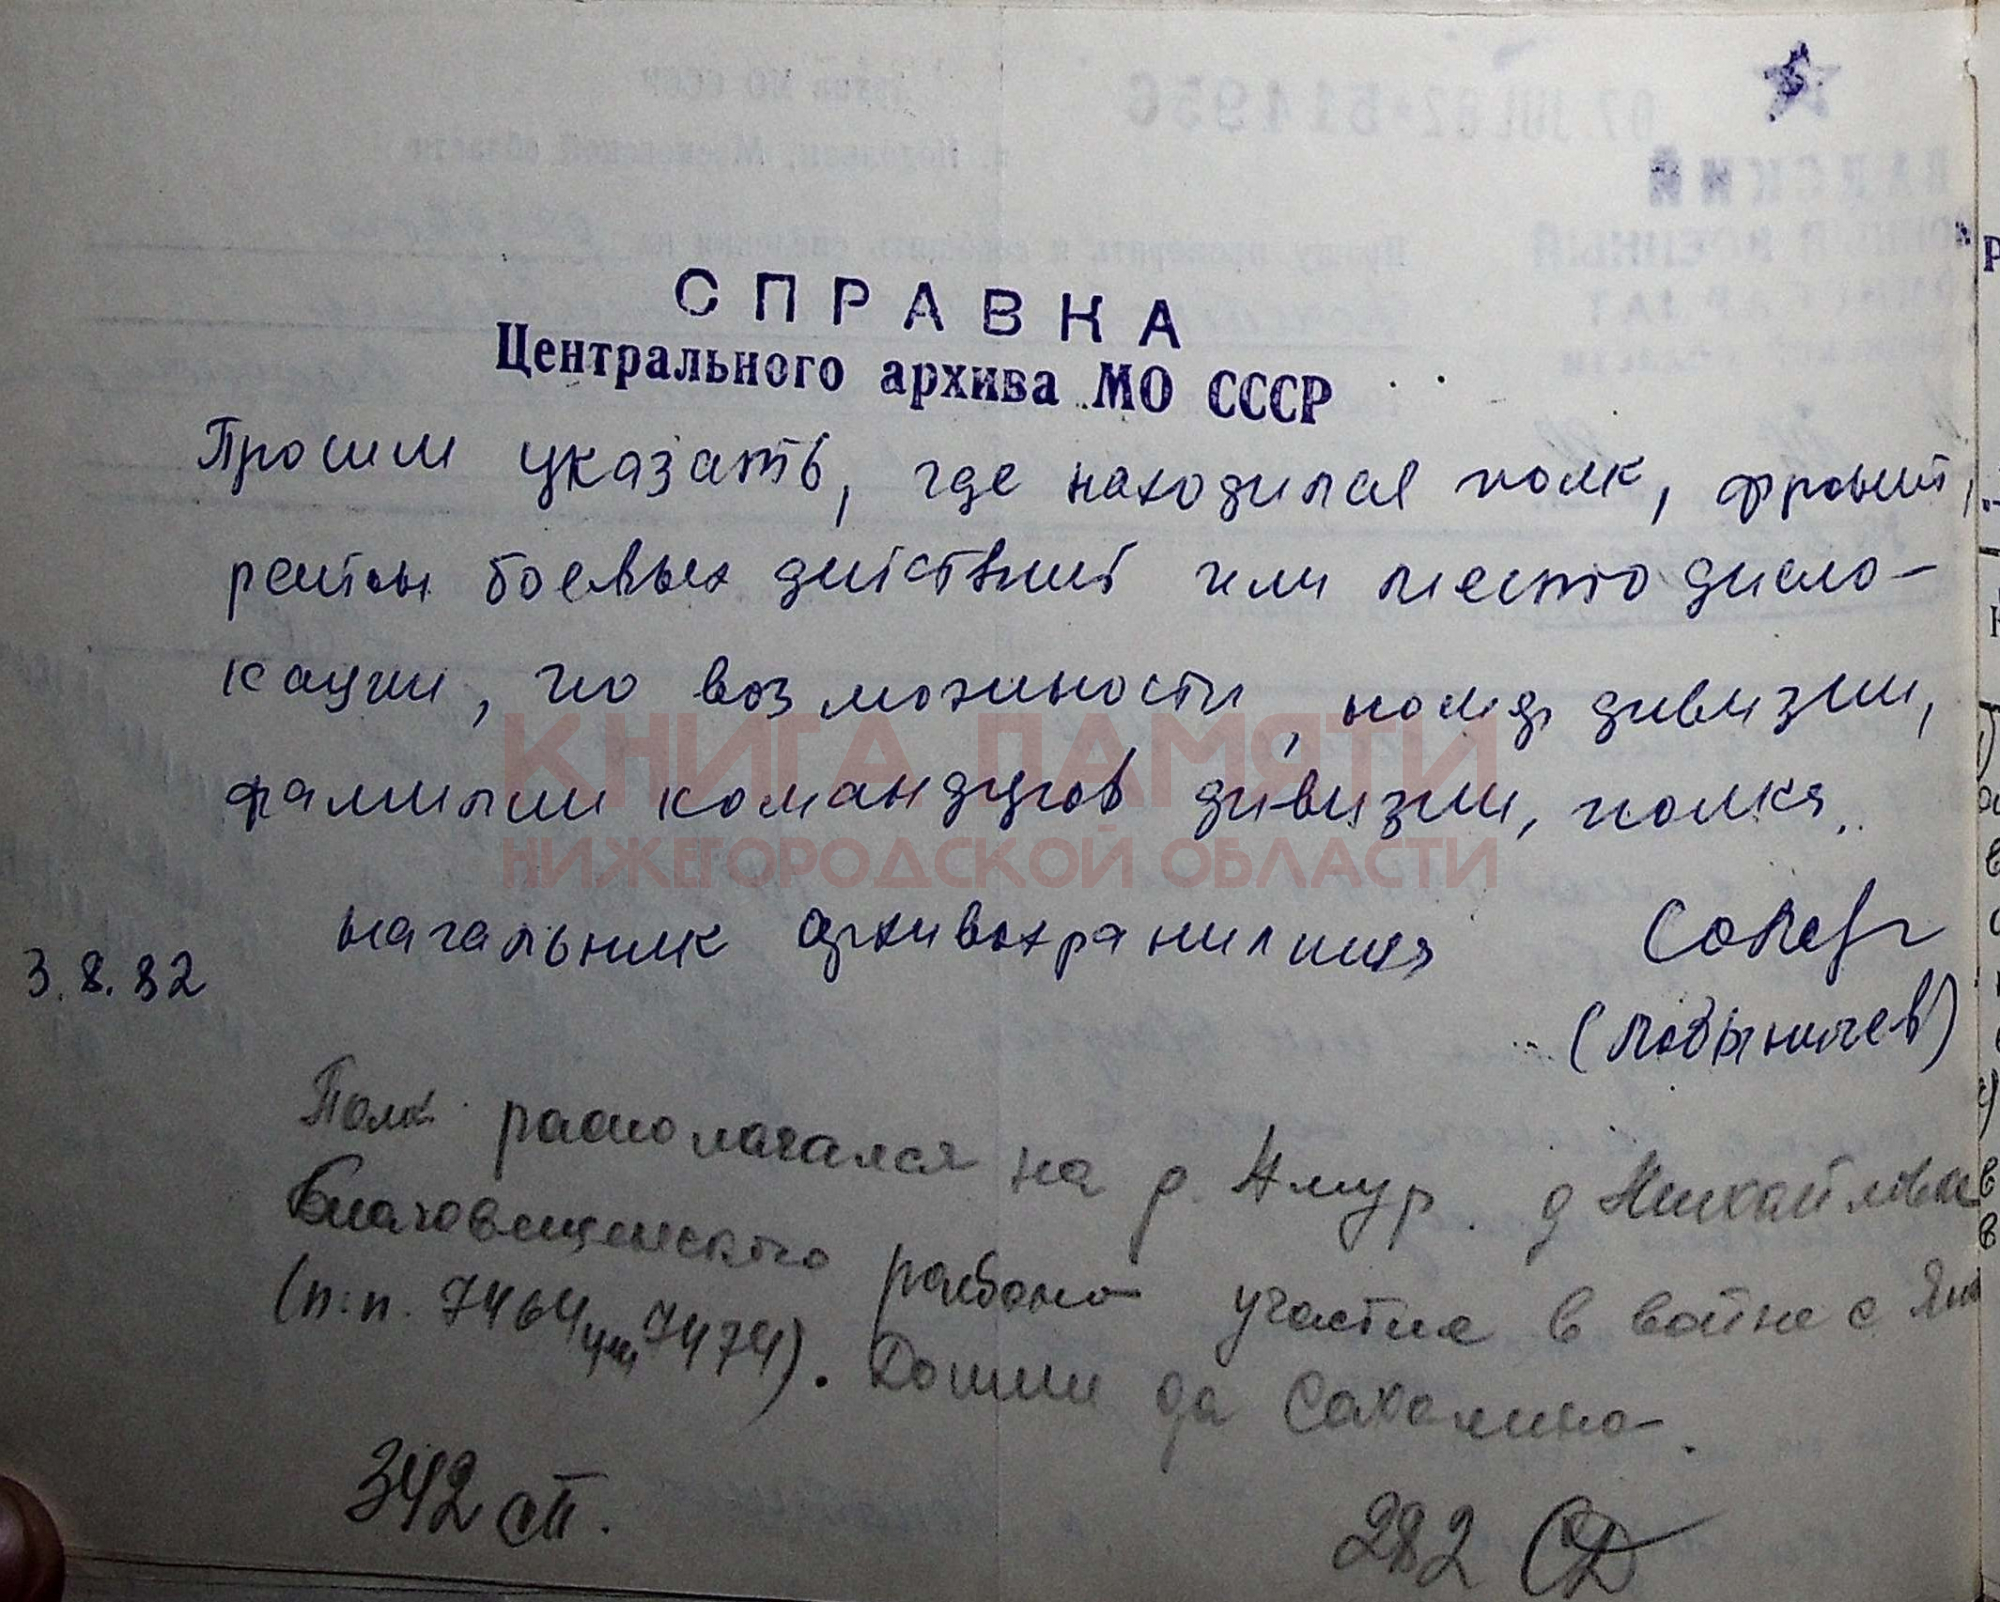 СПРАВКА
Центрального архива МО СССР
Просим указать, где находился полк, фронт,
район боевых действий или место дисло-
кации, по возможности, номер дивизии,
фамилии командиров дивизии, полка.
КНИГА ПАМЯТИ
НИЖЕГОРОДСКОЙ ОБЛАСТИ
начальник архивохранилища
3.8.82
Полк располагался на р. Амур. д Михайловка
Благовещенского района участие в войне с Яп
(п.п. 7464 или 7474). Дошли да Сахалина.
342 сп.
282 СД